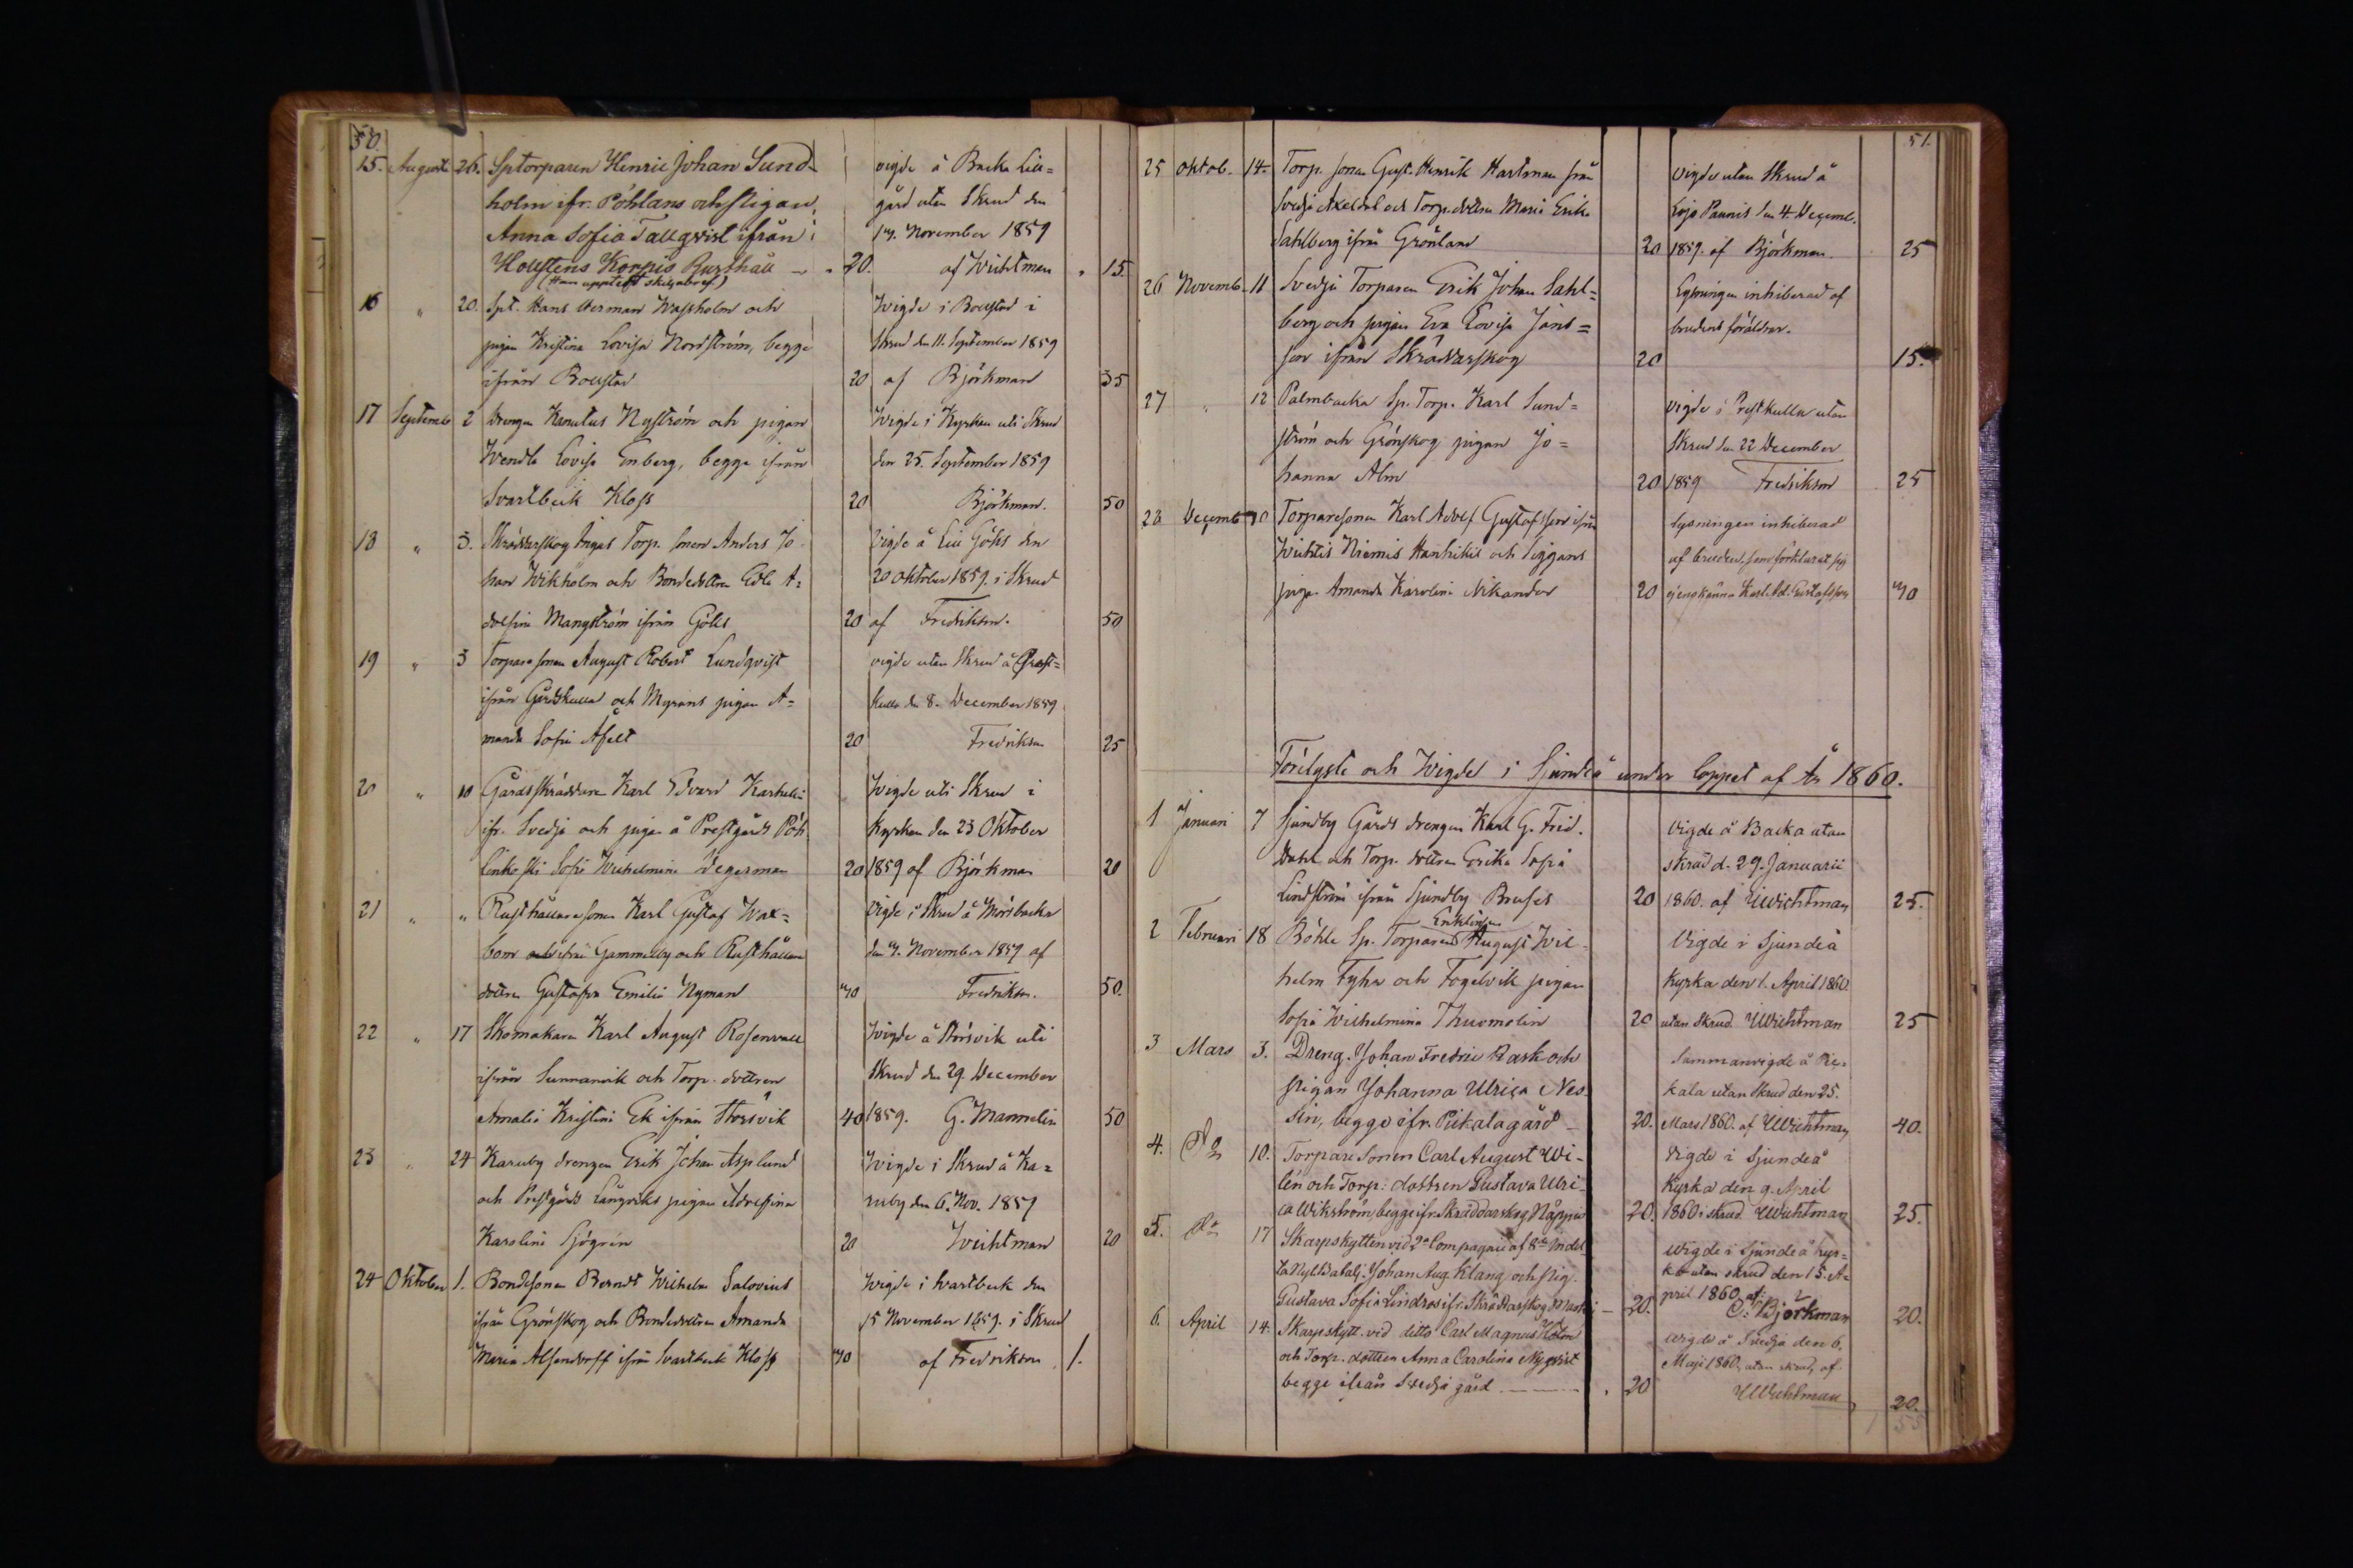 50.
15. Augusti 26. Sptorparen Henric Johan Sund-
holm ifr. Pöhlans och Pigan
Anna Sofia Tallqvist ifrån
Hollstens Korpis Rusthåll
20.
(Han upptett skiljobref)
vigde å Backa Lill=
gård utan Skrud den
November 1859
af Wichtman
15.
16 " 20. Spt. Hans Herman Wassholm och
pigan Kristina Lovisa Nordström, begge
ifrån Bollstad
20
Wigde i Bollstad i
Skrud den 11. September 1859
af Björkman
35
17 Septemb 2 Drengen Kanutus Nyström och pigan
Wendla Lovisa Enberg, begge ifrån
Svartbeck Kloss
20
Wigde i Kyrkan uti Skrud
den 25. September 1859
Björkman.
50
18 " 3. Skräddarskog Torp. sonen Anders Jo-
han Wikholm och Bondedottren Edla A=
dolfina Mangström ifrån Göks
20
Vigde å Göks den
20 Oktober 1859. i Skrud
af Fredrikson.
50
19 " 3 Torpare sonen August Robert Lundqvist
ifrån Gårdskulla och Myrans pigan A=
manda Sofia
20
vigde utan Skrud å Prest=
kulla d. 8. December 1859
Fredrikson
25
20 " 10 Gårdsskräddaren Karl Edvard Karhelin
ifr. Svedja och pigan å Prestgårds
Sofi Wilhelmina Degerman
20
Wigde uti Skrud i
Kyrkan den 23 Oktober
1859 af Björkman
20
21 " " Rusthållaresonen Karl Gustaf Wax=
bom ifrån Gammelby och Rusthållare
dottren Gustafva Emilia Nyman
40
Vigde i Skrud å Mörsbacka
den 4. November 1859 af
Fredrikson.
50.
22 " 17 Skomakaren Karl August Rosenvall
ifrån Sunnanvik och Torp. dottren
Amalia Kristina Ek ifrån Störsvik
40
Wigde å Störsvik uti
Skrud den 29. December
1859. G. Mannelin
50
23 " 24 Karuby drengen Erik Johan Asplund
och Prestgårds Långviks pigan Adolfina
Karolina Sjögrén
20
Wigde i Skrud å Ka=
ruby den 6. Nov. 1859
Wichtman
20
24 Oktober 1. Bondesonen Berndt Wilhelm Salovius
ifrån Grönskog och Bondedottren Amanda
Maria Alfendorff ifrån Svartbeck Kloss
40
Wigde i Svartbeck den
15 November 1859. i Skrud
af Fredrikson
1.
51.
25 Oktob. 14. Torp. sonen Gust. Henrik Hartman från
Svedja Axeldal och Torp. dottren Maria Erika
Sahlberg ifrån Grönland
20
Vigde utan Skrud å
Lojo Paunis den 4. Decemb.
1859. af Björkman.
25
26 Novemb. 11 Svedja Torparen Erik Johan Sahl=
berg och pigan Eva Lovisa Jans=
son ifrån Skräddarskog
20
Lysningen inhiberad af
brudens föräldrar.
15.
27 " 12 Palmbacka Sp. Torp. Karl Sund=
ström och Grönskog pigan Jo=
hanna Alm
20
Vigde å Prestkulla utan
Skrud den 22 December
1859 Fredrikson
25
28 Decemb 10 Torparesonen Karl Adolf Gustafsson ifrån
Wichtis Niemis Hanhikis och Siggans
pigan Amanda Karolina Nikander
20
Lysningen inhiberad
af bruden, som förklarat sig
ej mer känna Karl Ad. Gustafsson
40
Förelyste och Wigde i Sjundeå under loppet af År 1860.
1 Januari 7 Sjundby Gårds drengen Karl G. Frid.
Dahl och Torp. dottren Erika Sofia
Lindström ifrån Sjundby Brusas
20
Vigde å Backa utan
skrud d. 29. Januarii
1860. af UWichtman
25.
2 Februari 18 Böhle Sp. Torparen Enklingen August Wil-
helm Fyhr och Fogelvik pigan
Sofia Wilhelmina Thuomolin
20
Vigde i Sjundeå
Kyrka den 1. April 1860.
utan Skrud. UWichtman
25
3 Mars 3. Dreng. Johan Fredric Rask och
Pigan Johanna Ulrica Nes-
sin, begge ifr. Pickala gård
20.
Sammanvigde å Pic-
kala utan Skrud den 25.
Mars 1860. af UWichtman
40.
4. Do 10. Torpare Sonen Carl August Wi-
lén och Torp: dottren Gustava Ulri-
ca Wikström, begge ifr. Skräddarskog Näppis
20.
Vigde i Sjundeå
Kyrka den 9. April
1860 i skrud. UWichtman
25.
5. Do 17 Skarpskytten vid 2a Compagni af 8de Indel
ta Nyl. Batalj. Johan Aug. Klang och Pig.
Gustava Sofia Lindros ifr. Skräddarskog
20.
Wigde i Sjundeå kyr=
ka utan skrud den 15. A=
pril 1860. af
C. Björkman
20.
6. April 14. Skarpskytt. vid ditto Carl Magnus Holm
och Torp. dottren Anna Carolina Nyqvist
begge ifrån Svedja gård
20
Wigde å Svedja den 6.
Maji 1860, utan skrud, af
UWichtman
20.